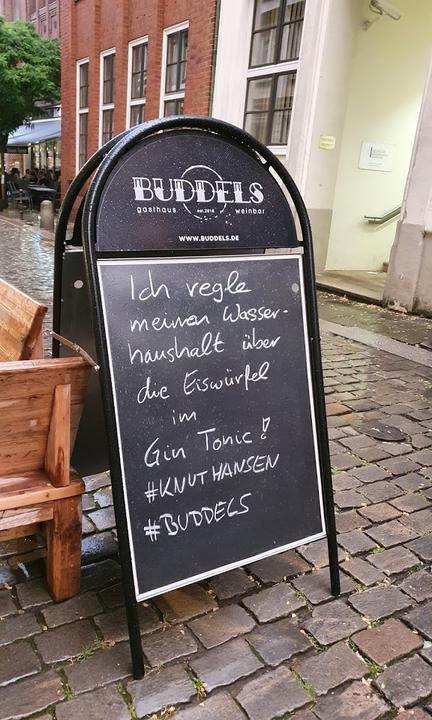 BUDDELS
gasthaus est.2016 weinbar
WWW.BUDDELS.DE
Ich regle
meinen Wasser-
haushalt über
die Eiswürfel
im
Gin Tonic!
#KNUT HANSEN
#BUDDELS